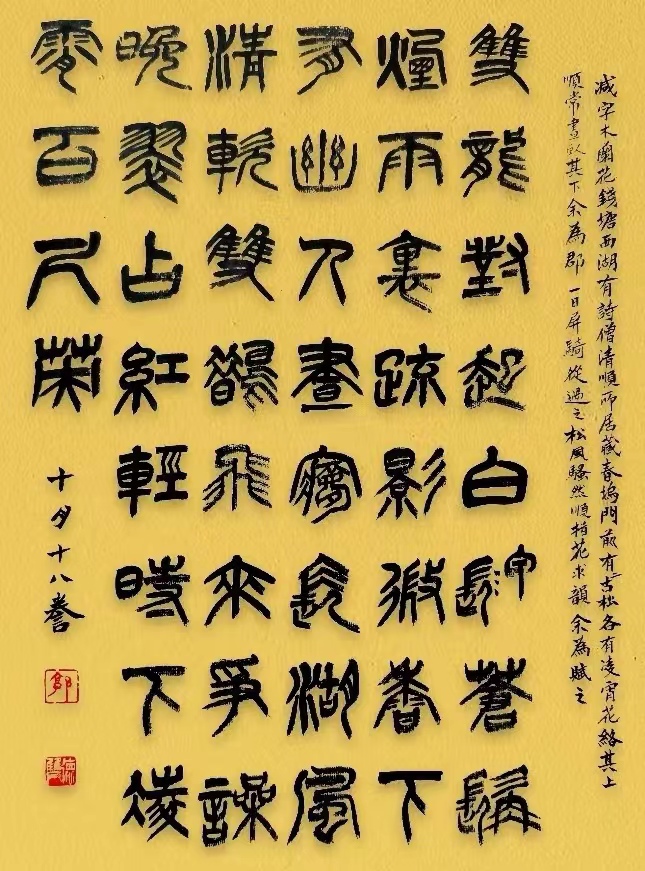 减字木蘭花錢塘西湖有詩僧清順所居藏春塢門前有古松各有凌霄花絡其上
順常晝臥其下余為郡一日屏騎從過之松風騷然順指花求韻余為賦之
雙龍對起白甲蒼髯
煙雨裏疏影微香下
有幽人晝夢長湖風
清軟雙鵲飛來爭譟
晚翠占紅輕時下凌
霄百尺英
十月十八誊
郭